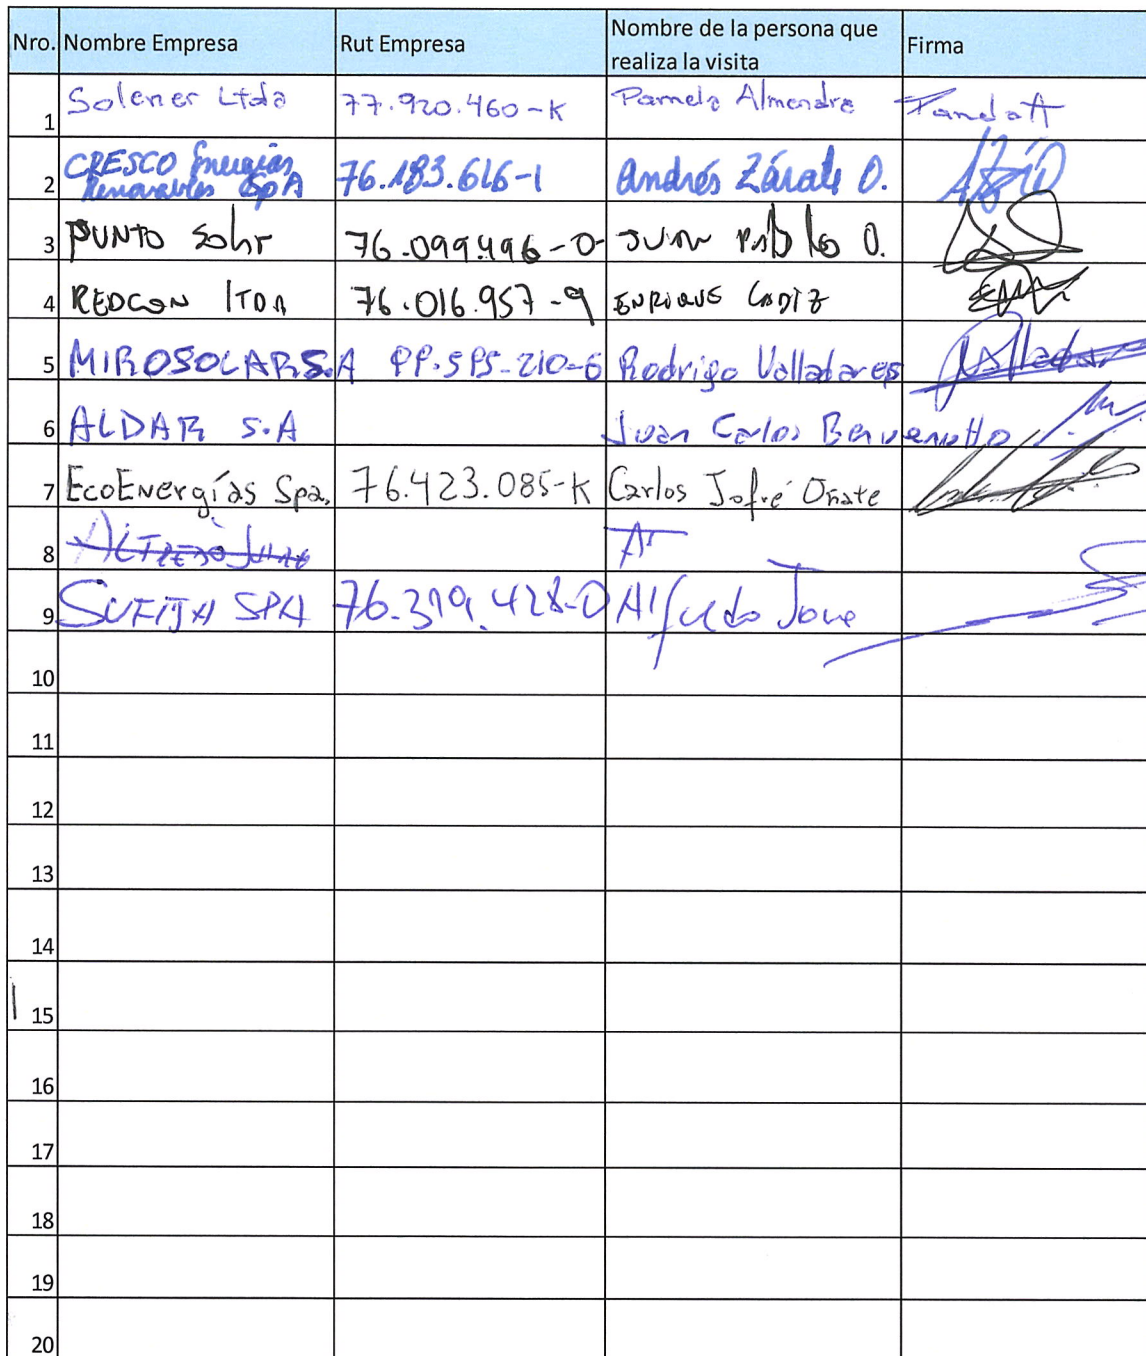 Nro. Nombre Empresa Rut Empresa Nombre de la persona que realiza la visita Firma
1 Solener Ltda 77.920.460-K Pamela Almendra
2 CRESCO Energías Renovables SpA 76.183.616-1 Andrés Zárate O.
3 PUNTO Solar 76.099.496-0 JUAN Pablo O.
4 REDCON LTDA 76.016.957-9 ENRIQUE CADIZ
5 MIROSOLAR S.A Rodrigo Valladares
6 ALDAR S.A Juan Carlos Benvenutto
7 EcoEnergías Spa. 76.423.085-K Carlos Jofré Oñate
8
9 SPA 76.319.428-0 Alfredo
10
11
12
13
14
15
16
17
18
19
20